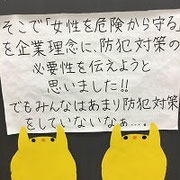 そこで「女性を危険から守る」
を企業理念に、防犯対策の
必要性を伝えようと
思いました!!
でもみんなはあまり防犯対策
をしていないなぁ…。